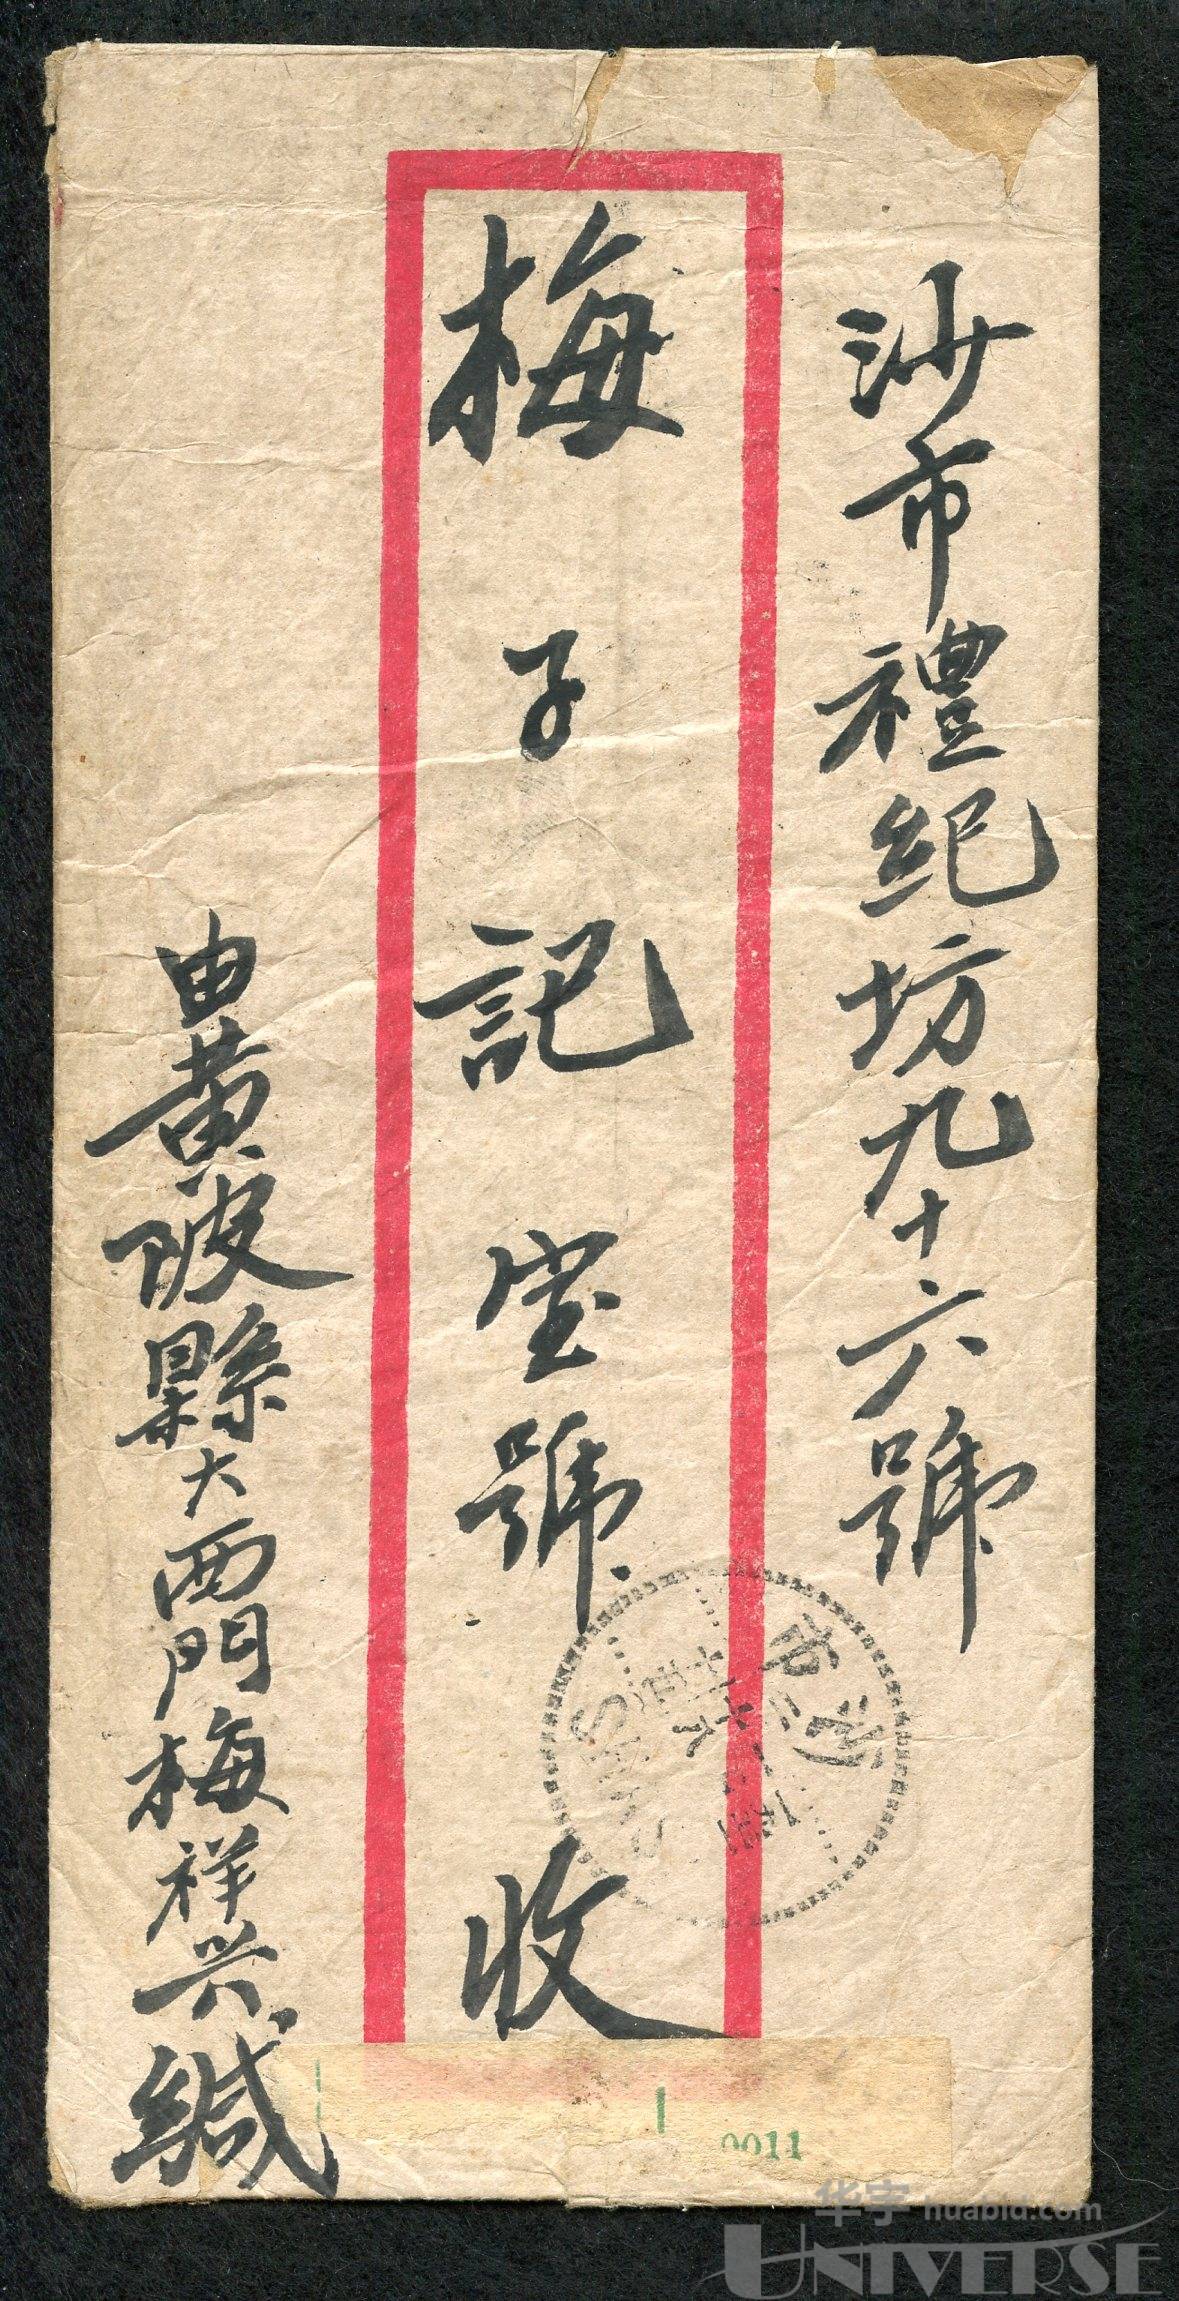 沙市禮紀坊九十六號
梅子記宝號收
由黄陂縣大西門梅祥兴缄
沙市
SHASI
0011
华宇 huabid.com
UNIVERSE